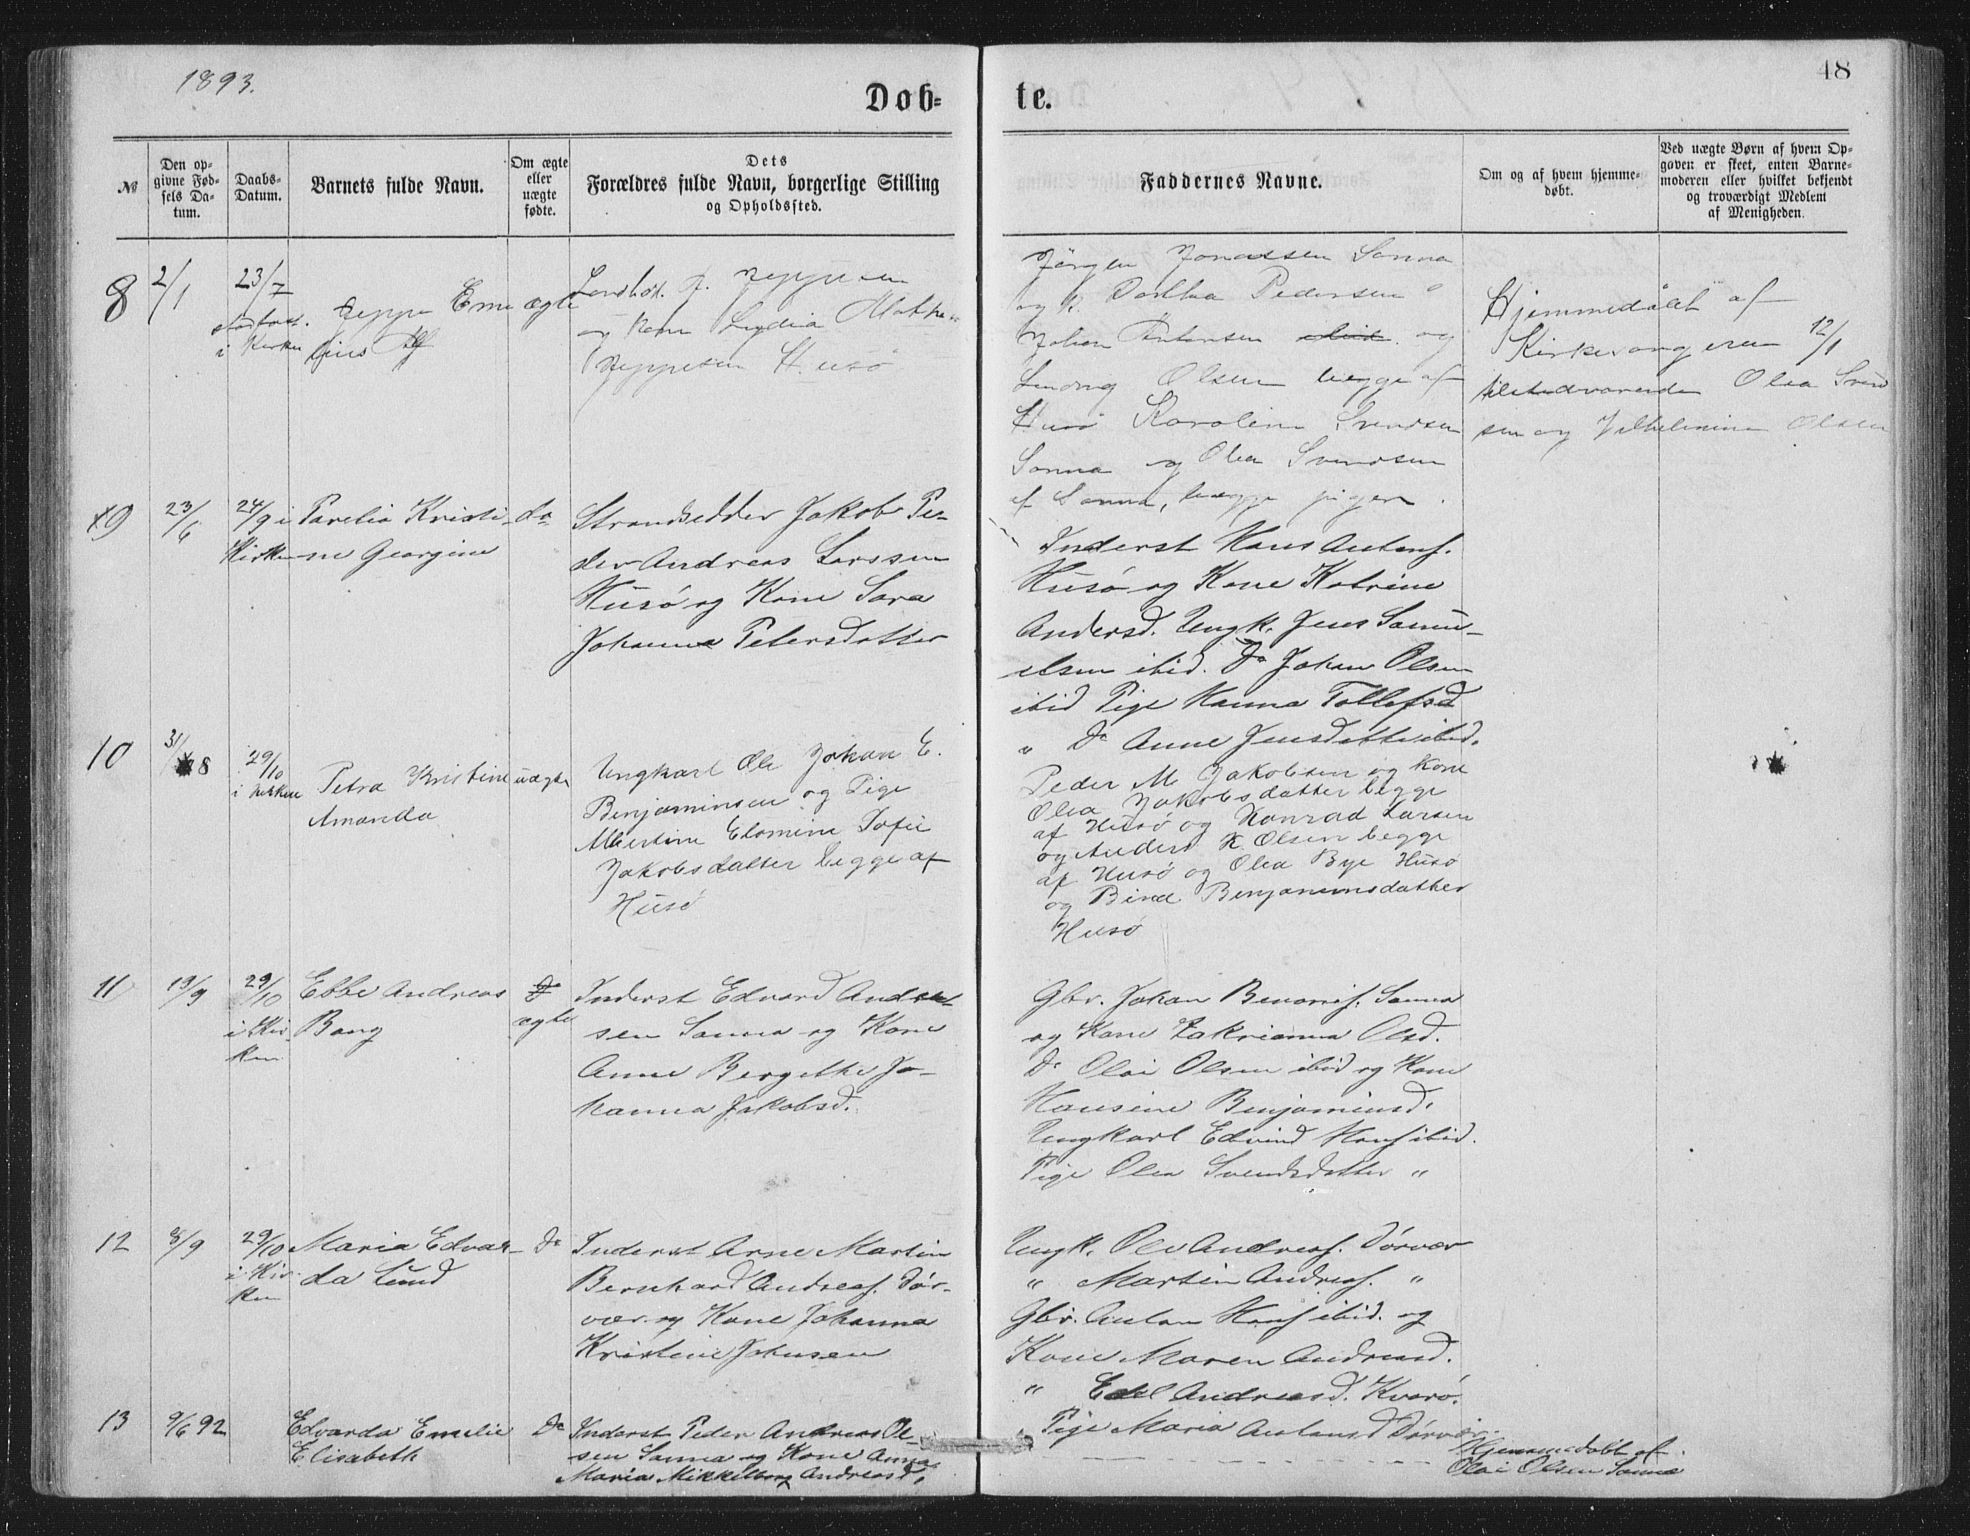 1893.
48
Døb-
te.
№
Den op-
givne Fød-
sels Da-
tum.
Daabs-
Datum.
Barnets fulde Navn.
Om ægte
eller
uægte
fødte.
Dets
Forældres fulde Navn, borgerlige Stilling
og Opholdssted.
Faddernes Navne.
Om og af hvem hjemme-
døbt.
Ved uægte Børn af hvem Op-
gaven er skeet, enten Barne-
moderen eller hvilket bekjendt
og troværdigt Medlem
af Menigheden.
8
2/1
23/7
i Kirken
Jeppe
ægte
Jeppesen
og Kone Lydia
Jeppesen Husø
Jørgen Jonassen Sanna
Pedersen
Johan Antonsen og
Olsen begge af
Husø Karoline Svendsen
Sanna og Olea Svendsen
af Sanna, begge piger.
Hjemmedøbt af
Kirkesangeren 12/1
Olea Svend
sen og Vilhelmine Olsen
9
23/6
24/9 i
Kirken
Parelia Kristi-
ne Georgine
do
Strandsedder Jakob Pe-
der Andreas Larssen
Husø og Kone Sara
Johanna Petersdatter
Inderst Hans Antons.
Husø og Kone Katrine
Andersd. Ungk. Jens Samu-
elsen ibid. Do Johan Olsen
ibid Pige Hanna Tollefsd
" Do Anne Jensdatter ibid.
10
31/8
29/10
i Kirken
Petra Kristine
Amanda
uægte
Ungkarl Ole Johan E.
Benjaminsen og Pige
Albertine Elomine Sofie
Jakobsdatter begge af
Husø
Peder M. Jakobsen og Kone
Olea Jakobsdatter begge
af Husø og Konrad Larsen
og Anders K. Olsen begge
af Husø og Olea Bye Husø
og Benjaminsdatter
Husø
11
19/9
29/10
i Kir-
ken
Ebbe Andreas
Bang
ægte
Inderst Edvard Andrea-
sen Sanna og Kone
Anne Bergethe Jo-
hanna Jakobsd.
Gbr. Johan Benonis. Sanna
og Kone Zakrianna Olsd.
Do Olai Olsen ibid og Kone
Hansine Benjaminsd.
Ungkarl Edvind Hans ibid.
Pige Olea Svendsdatter "
12
8/9
29/10
i Kir-
ken
Maria Edvar-
da Lund
Do
Inderst Arne Martin
Bernhard Andreas. Dør-
vær og Kone Johanna
Kristine Johnsen
Ungk. Ole Andreas. Dørvær
" Martin Andreas. "
Gbr. Anton Hans ibid. og
Kone Maren Andreasd.
" Edel Andreasd. Kvarø.
" Pige Maria Antonsd Dørvær.
13
9/6 92
Edvarda Emelie
Elisabeth
Do
Inderst Peder Andreas Ol-
sen Sanna og Kone Anna
Maria Mikkelborg Andreasd.
Hjemmedøbt af
Olai Olsen Sanna